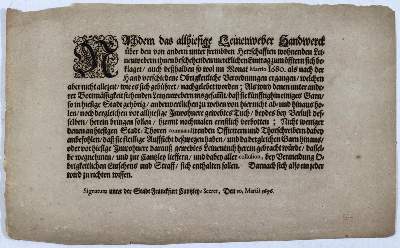 NAchdem das allhiesige Leinenweber Handwerck
über den von andern unter frembden Herrschafften wohnenden Lei-
newebern ihnen beschehenden mercklichen Eintrag zum öfftern sich be-
klaget / auch deßhalben so wol im Monat Martio 1680. als nach der
Hand verschiedene Obrigkeitliche Verordnungen ergangen / welchen
aber nicht allezeit / wie es sich gebühret / nachgelebet worden; Als wird denen unter ande-
rer Bottmässigkeit stehenden Leinenwebern ins gesambt / daß sie künfftighin einiges Garn /
so in hiesige Stadt gehörig / anderwertlichen zu weben von hier nicht ab- und hinaus ho-
len / noch dergleichen vor allhiesige Inwohnere gewebtes Tuch / bey des Verlust des-
selben / herein bringen sollen / hiermit nochmalen ernstlich verbotten; Nicht weniger
denen an hiesigen Stadt-Thoren commandirenden Officirern und Thorschreibern dabey
anbefohlen / daß sie fleissige Auffsicht deßwegen haben / und da dergleichen Garn hinaus /
oder vor hiesige Inwohnere daraus gewebtes Leinentuch herein gebracht würde / dassel-
be wegnehmen / und zur Cantzley lieffern / und dabey aller collusion, bey Vermeidung O-
brigkeitlichen Einsehens und Straff / sich enthalten sollen. Darnach sich also ein jeder
wird zu richten wissen.
Signatum unter der Stadt Franckfurt Cantzley-Secret, Den 10. Martii 1696.